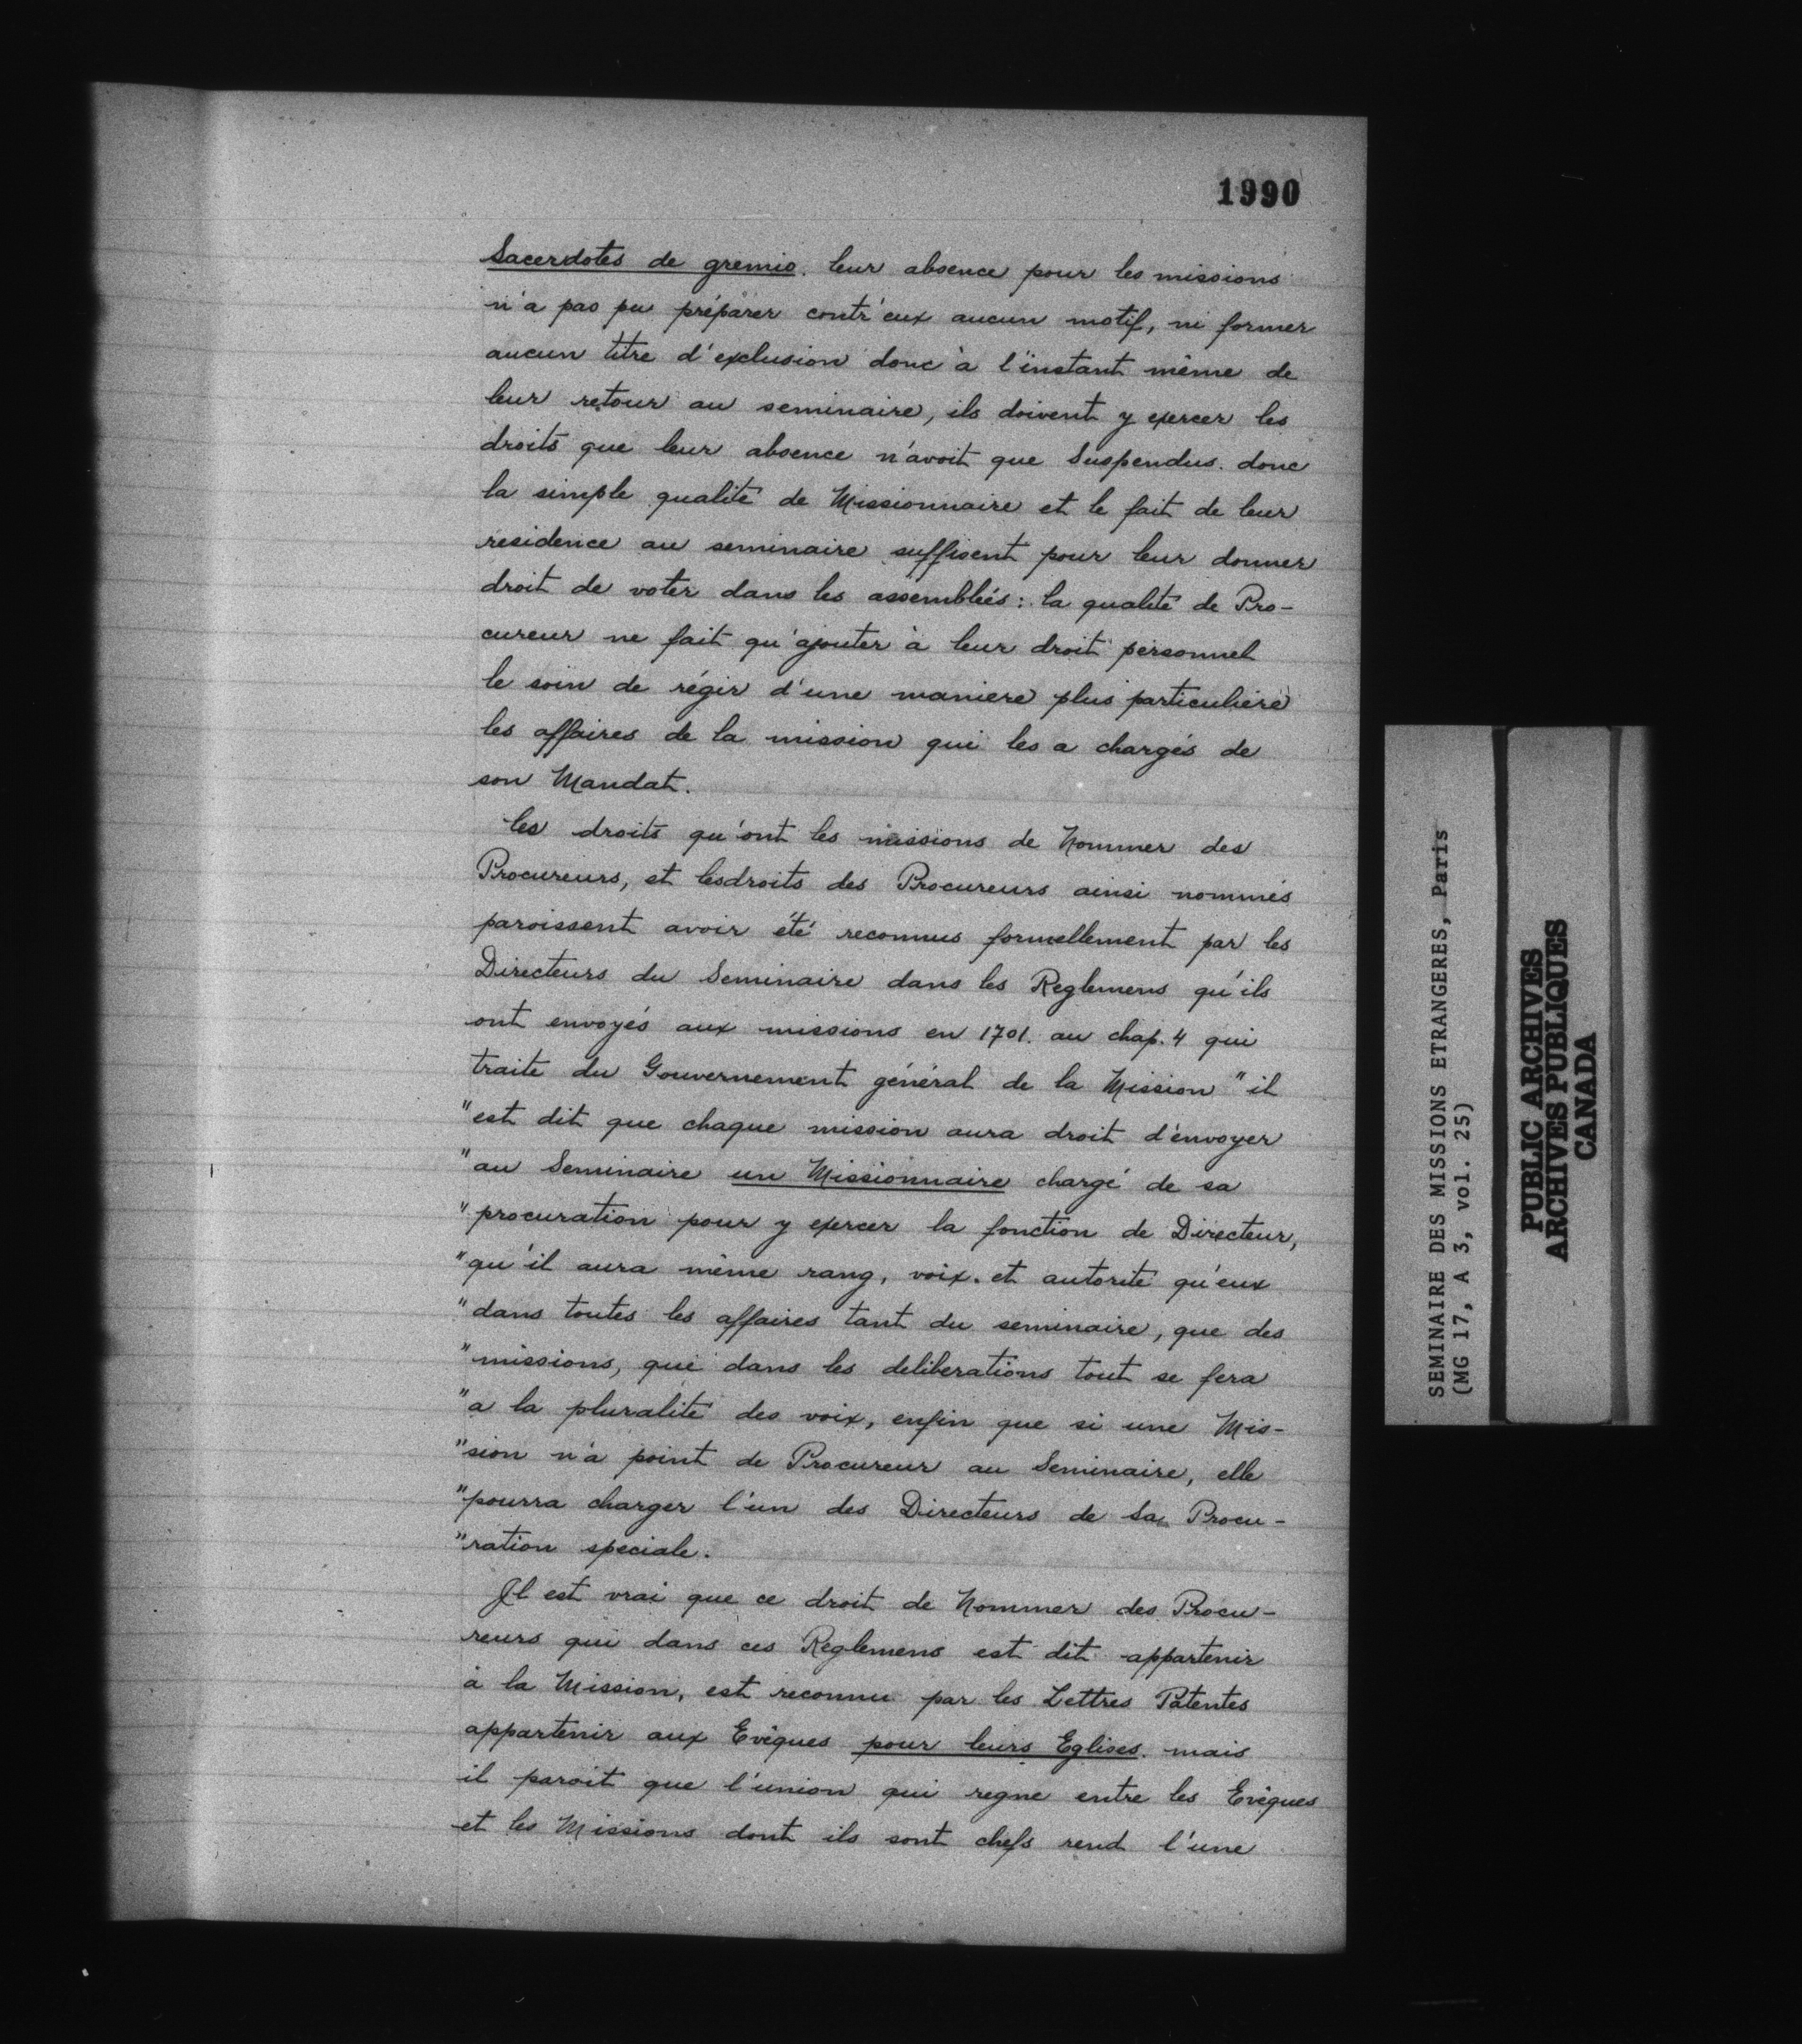 1990
Sacerdotes de gremio. leur absence pour les missions
n'a pas pu préparer contr'eux aucun motif, ni former
aucun titre d'exclusion donc à l'instant même de
leur retour au seminaire, ils doivent y exercer les
droits que leur absence n'avoit que Suspendus. donc
la simple qualité de Missionnaire et le fait de leur
residence au seminaire suffisent pour leur donner
droit de voter dans les assemblées: la qualité de Pro-
cureur ne fait qu'ajouter à leur droit personnel
le soin de régir d'une maniere plus particuliere
les affaires de la mission qui les a chargés de
son Mandat.
les droits qu'ont les missions de Nommer des
Procureurs, et lesdroits des Procureurs ainsi nommés
paroissent avoir été reconnus formellement par les
Directeurs du Seminaire dans les Reglemens qu'ils
ont envoyés aux missions en 1701. au chap. 4 qui
traite du Gouvernement général de la Mission "il
"est dit que chaque mission aura droit d'envoyer
"au Seminaire un Missionnaire chargé de sa
"procuration pour y exercer la fonction de Directeur,
"qu'il aura même rang, voix. et autorité qu'eux
"dans toutes les affaires tant du seminaire, que des
"missions, que dans les deliberations tout se fera
"a la pluralité des voix, enfin que si une Mis-
"sion n'a point de Procureur au Seminaire, elle
"pourra charger l'un des Directeurs de Sa Procu-
"ration speciale.
Il est vrai que ce droit de Nommer des Procu-
reurs qui dans ces Reglemens est dit appartenir
à la Mission, est reconnu par les Lettres Patentes
appartenir aux Evêques pour leurs Eglises. mais
il paroit que l'union qui regne entre les Evêques
et les Missions dont ils sont chefs rend l'une
SEMINAIRE DES MISSIONS ETRANGERES, Paris
(MG 17, A 3, vol. 25)
PUBLIC ARCHIVES
ARCHIVES PUBLIQUES
CANADA